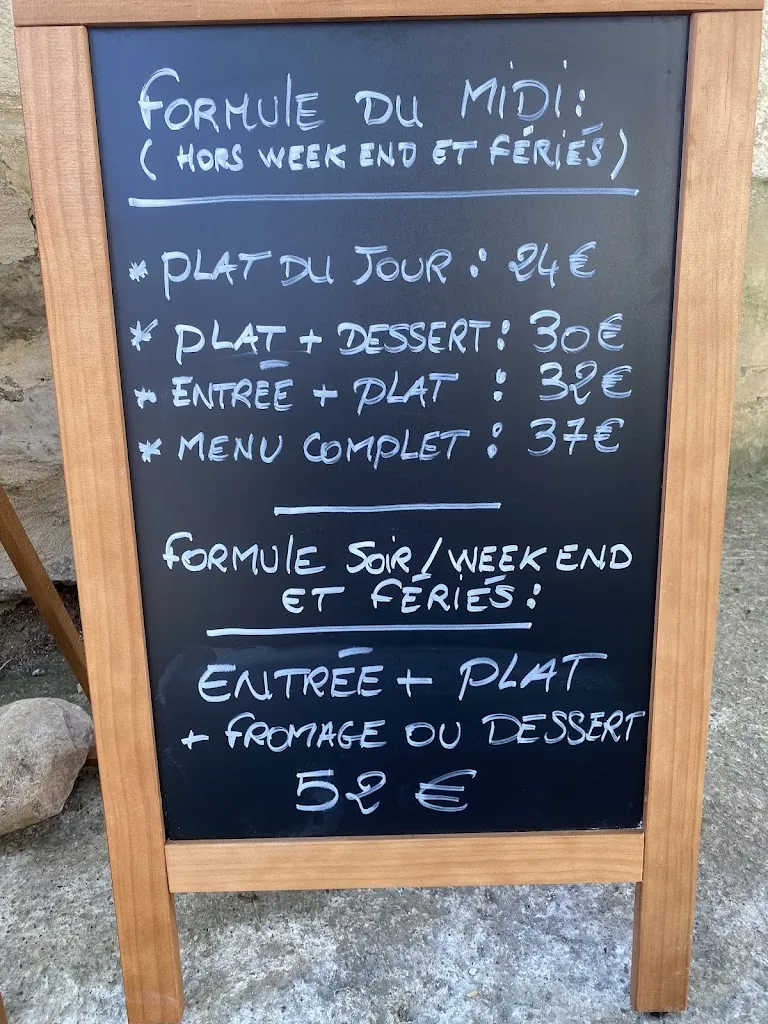 FORMULE DU MIDI :
( HORS WEEK END ET FÉRIÉS )
* PLAT DU JOUR : 24€
* PLAT + DESSERT : 30€
* ENTRÉE + PLAT : 32€
* MENU COMPLET : 37€
FORMULE SOIR / WEEK END
ET FÉRIÉS :
ENTRÉE + PLAT
+ FROMAGE OU DESSERT
52 €